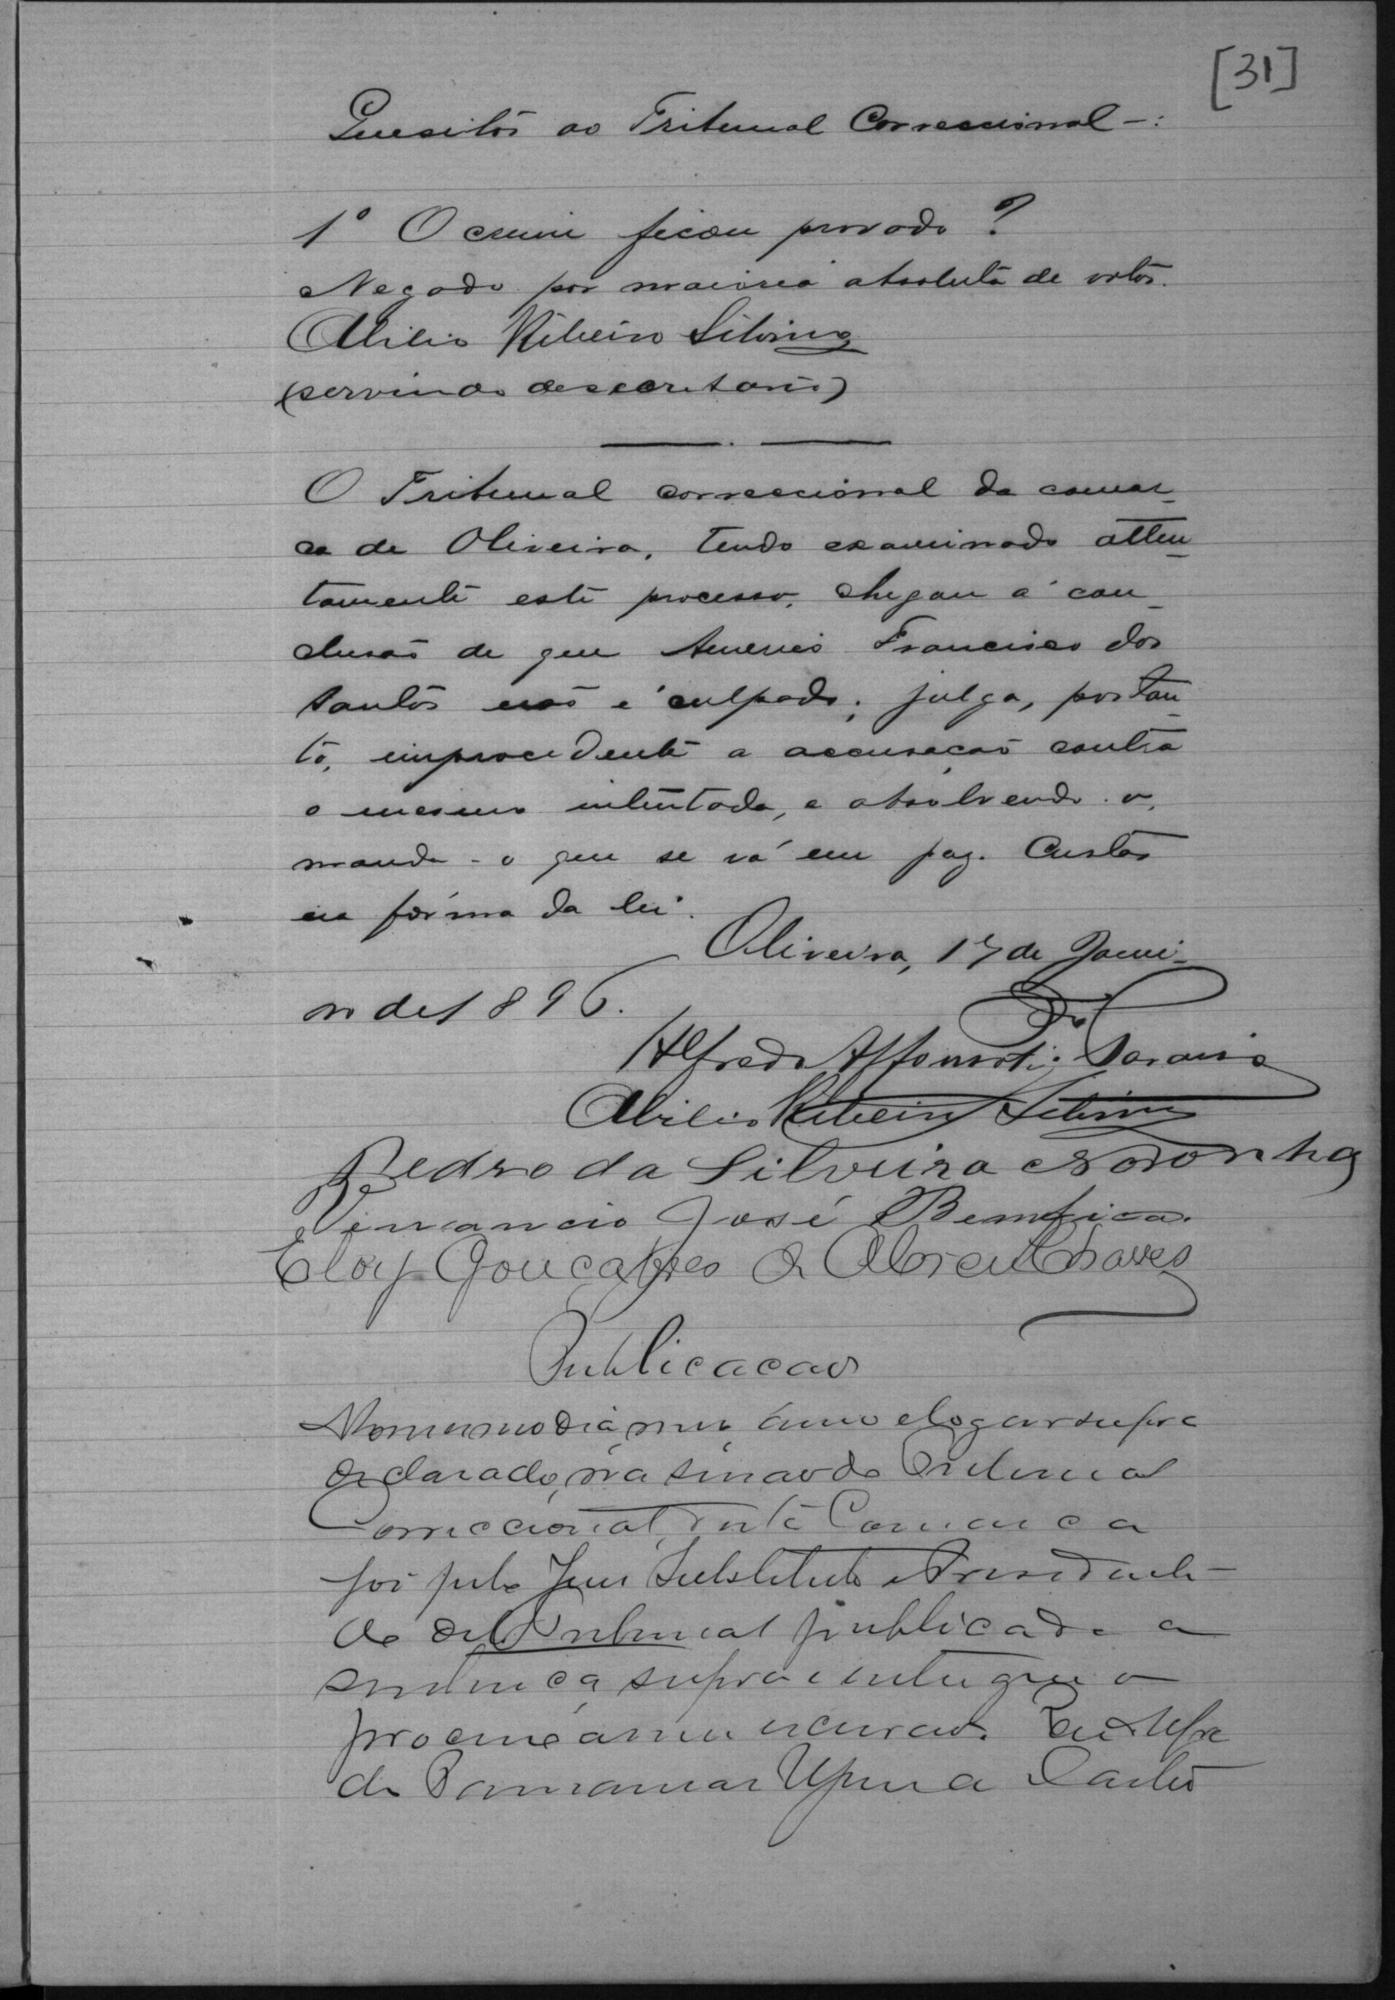 [31]
Quesitos ao Tribunal Correccional -:
1º O crime ficou provado?
Negado por maioria absoluta de votos.
Abilio Ribeiro Silvino
(servindo de secretario)
O Tribunal correccional da comar-
ca de Oliveira, tendo examinado atten-
tamente este processo, chegou á con-
clusão de que Americo Francisco dos
Santos não é culpado; julga, portan-
to, improcedente a accusação contra
o mesmo intentada, e absolvendo-o,
manda-o que se vá em paz. Custas
na fórma da lei.
Oliveira, 17 de Janei-
ro de 1896.
Alfredo Affonso
Abilio Ribeiro Silvino
Pedro da Silveira Noronha
Venancio José Bemfica.
Eloy Gonçalves de Abreu Chaves
Publicacao
No mesmo dia, mez anno e logar supra
declarado, na do Tribunal
Correccional, desta Comarca
foi pelo Juiz Substituto e Presidente
do Tribunal publicada a
sentença supra e entregue o
processo a mim escrivão. Eu
de Castro